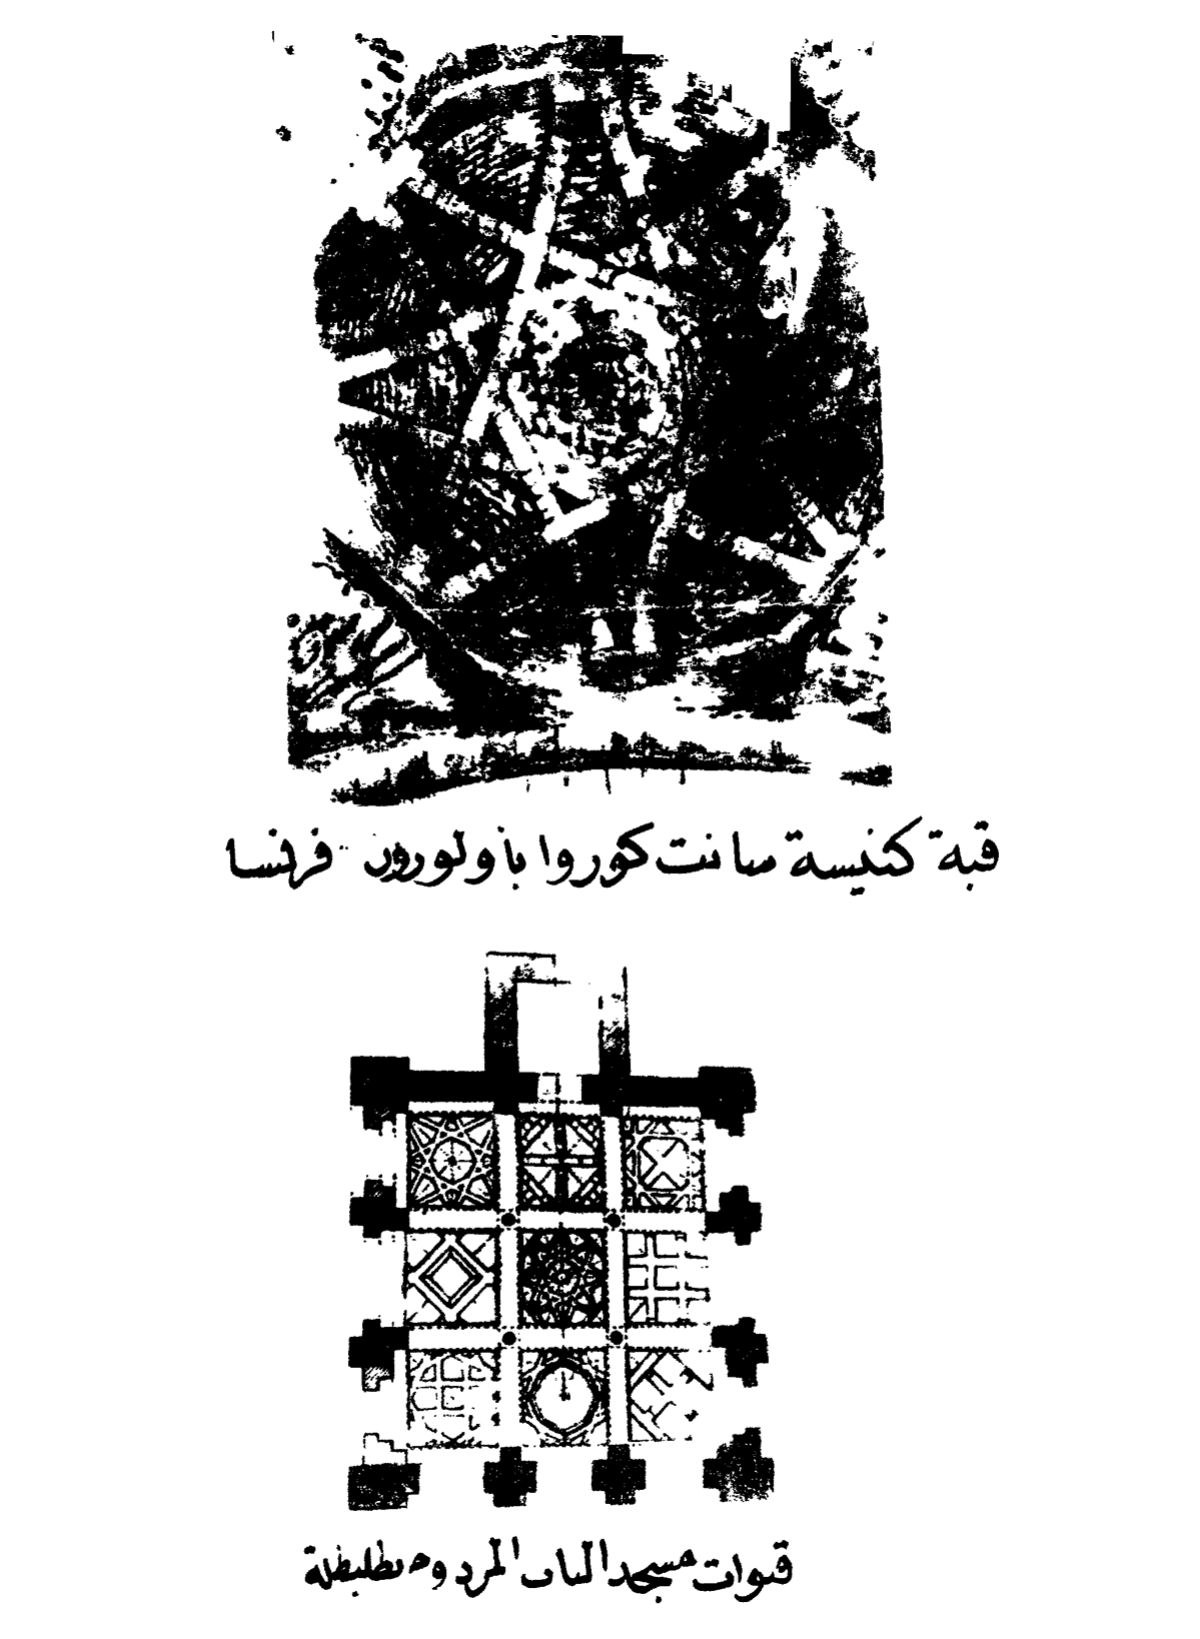 قبة كنيسة سانت كوروا بأولورون - فرنسا
قبوات مسجد الباب المردوم بطليطلة